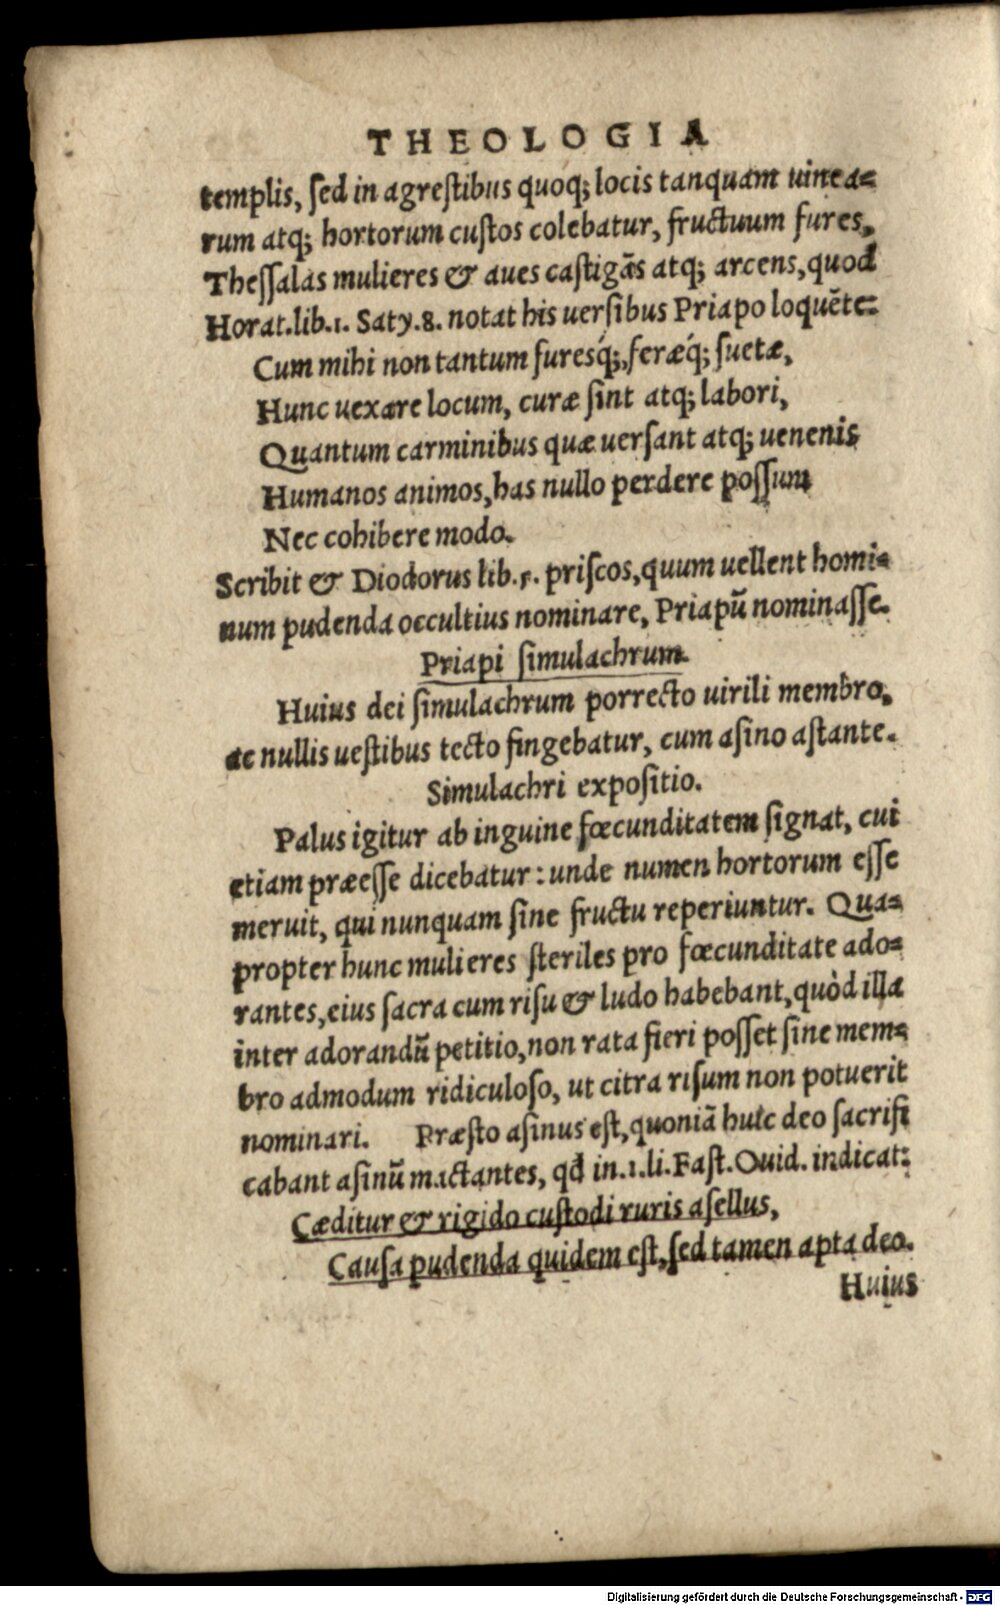 THEOLOGIA
templis, ſed in agreſtibus quoq; locis tanquam uinea=
rum atq; hortorum cuſtos colebatur, fructuum fures,
Theſſalas mulieres & aues caſtigās atq; arcens, quod
Horat.lib.1. Saty.8. notat his uerſibus Priapo loquēte:
Cum mihi non tantum furesq́;, feræq́; ſuetæ,
Hunc uexare locum, curæ ſint atq; labori,
Quantum carminibus quæ uerſant atq; uenenis
Humanos animos, has nullo perdere poſſum
Nec cohibere modo.
Scribit & Diodorus lib.5. priſcos, quum uellent homi=
num pudenda occultius nominare, Priapū nominaſſe.
Priapi ſimulachrum.
Huius dei ſimulachrum porrecto uirili membro,
ac nullis ueſtibus tecto fingebatur, cum aſino aſtante.
Simulachri expoſitio.
Palus igitur ab inguine fœcunditatem ſignat, cui
etiam præeſſe dicebatur: unde numen hortorum eſſe
meruit, qui nunquam ſine fructu reperiuntur. Qua=
propter hunc mulieres ſteriles pro fœcunditate ado=
rantes, eius ſacra cum riſu & ludo habebant, quòd illa
inter adorandū petitio, non rata fieri poſſet ſine mem=
bro admodum ridiculoſo, ut citra riſum non potuerit
nominari. Præſto aſinus eſt, quoniā huic deo ſacrifi
cabant aſinū mactantes, qđ in.1.li.Faſt.Ouid. indicat:
Cæditur & rigido cuſtodi ruris aſellus,
Cauſa pudenda quidem eſt, ſed tamen apta deo.
Huius
Digitalisierung gefördert durch die Deutsche Forschungsgemeinschaft - DFG